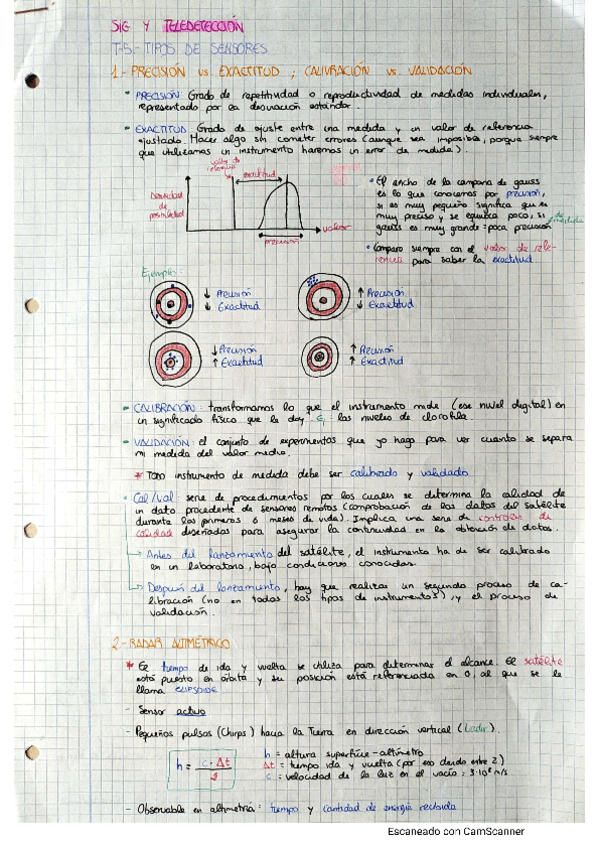 SIG Y TELEDETECCIÓN
T-5.- TIPOS DE SENSORES
1.- PRECISIÓN vs EXACTITUD ; CALIVRACIÓN vs. VALIDACIÓN
PRECISIÓN Grado de repetitividad o reproductividad de medidas individuales,
representado por la desviación estándar.
EXACTITUD Grado de ajuste entre una medida y un valor de referencia
ajustado. Hacer algo sin cometer errores (aunque sea imposible, porque siempre
que utilizamos un instrumento haremos un error de medida).
valor de
referencia
exactitud
Densidad
de
probabilidad
valor
precisión
El ancho de la campana de gauss
es lo que conocemos por precisión,
si es muy pequeño significa que es
muy preciso y se equivoca poco, si
gauss es muy grande = poca precisión
de medida
Comparo siempre con el valor de refe-
rencia para saber la exactitud
Ejemplo:
↓ Precisión
↓ Exactitud
↑ Precisión
↓ Exactitud
↓ Precisión
↑ Exactitud
↑ Precisión
↑ Exactitud
CALIBRACIÓN: transformamos lo que el instrumento mide (ese nivel digital) en
un significado físico que le doy. los niveles de clorofila.
VALIDACIÓN: el conjunto de experimentos que yo hago para ver cuanto se separa
mi medida del valor medio.
* Todo instrumento de medida debe ser calibrado y validado
Cal/val: serie de procedimientos por los cuales se determina la calidad de
un dato procedente de sensores remotos (comprobación de los datos del satélite
durante los primeros 6 meses de vida). Implica una serie de controles de
calidad diseñados para asegurar la continuidad en la obtención de datos.
Antes del lanzamiento del satélite, el instrumento ha de ser calibrado
en un laboratorio, bajo condiciones conocidas.
Después del lanzamiento, hay que realizar un segundo proceso de ca-
libración (no en todos los tipos de instrumentos), y el proceso de
validación.
2.- RADAR ALTIMÉTRICO
* El tiempo de ida y vuelta se utiliza para determinar el alcance. El satélite
está puesto en órbita y su posición está referenciada en 0, al que se le
llama ELIPSOIDE
- Sensor activo
- Pequeños pulsos (Chirps) hacia la Tierra en dirección vertical
h = c · Δt / 2
h = altura superficie - altímetro
Δt = tiempo ida y vuelta (por eso divido entre 2)
c = velocidad de la luz en el vacío: 3·10⁸ m/s
- Observable en altimetría: tiempo y cantidad de energía recibida
Escaneado con CamScanner